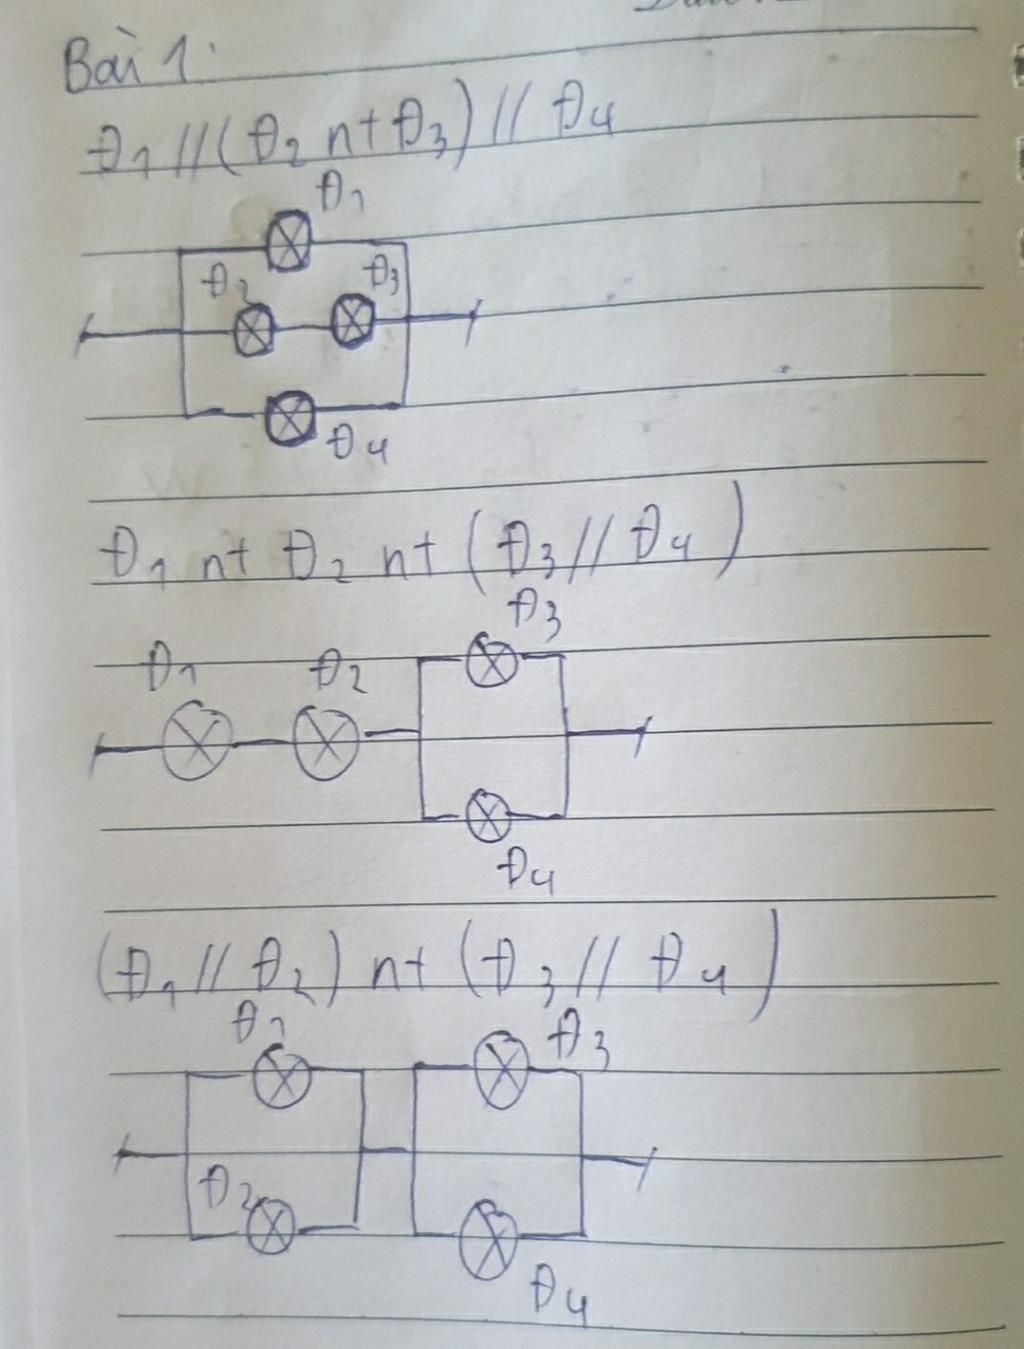 Bài 1:
Đ1 // (Đ2 nt Đ3) // Đ4
Đ1
Đ2 Đ3
Đ4
Đ1 nt Đ2 nt (Đ3 // Đ4)
Đ3
Đ1 Đ2
Đ4
(Đ1 // Đ2) nt (Đ3 // Đ4)
Đ1 Đ3
Đ2
Đ4